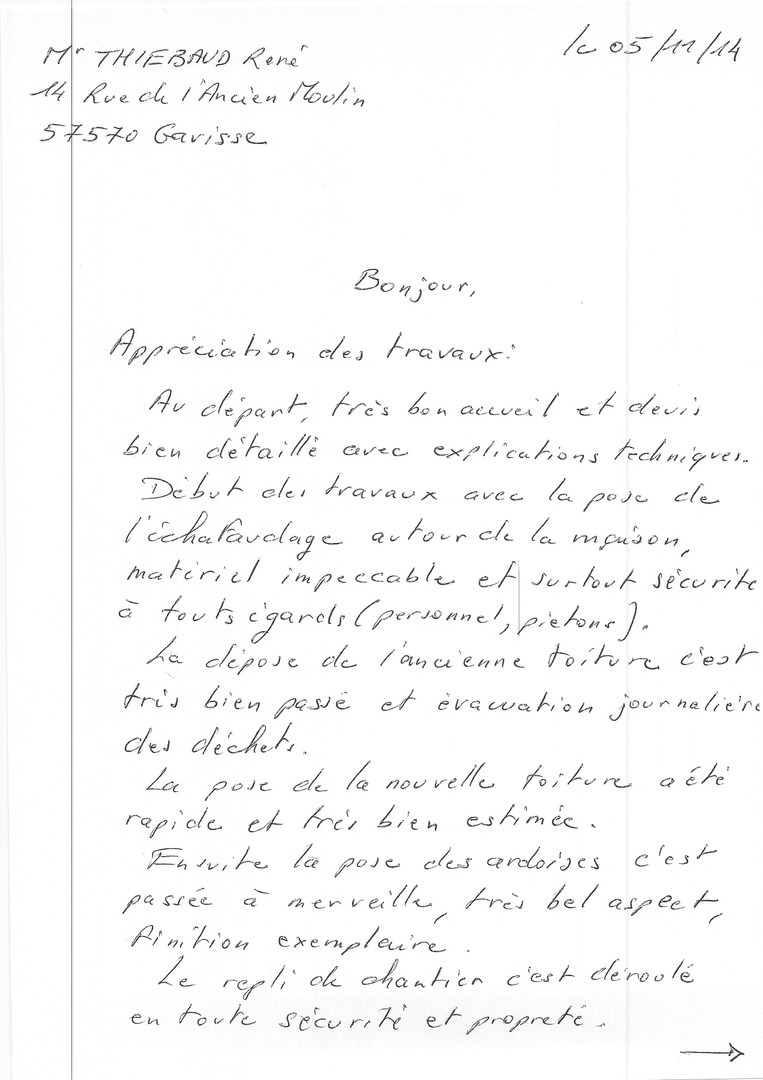 Mr THIEBAUD René
le 05/11/14
14 Rue de l'Ancien Moulin
57570 Gavisse
Bonjour,
Appréciation des travaux:
Au départ, très bon accueil et devis
bien détaillé avec explications techniques.
Début des travaux avec la pose de
l'échafaudage autour de la maison,
matériel impeccable et surtout sécurité
à touts égards (personnel, piétons).
La dépose de l'ancienne toiture c'est
très bien passé et évacuation journalière
des déchets.
La pose de la nouvelle toiture a été
rapide et très bien estimée.
Ensuite la pose des ardoises c'est
passée à merveille, très bel aspect,
finition exemplaire.
Le repli de chantier c'est déroulé
en toute sécurité et propreté.
→